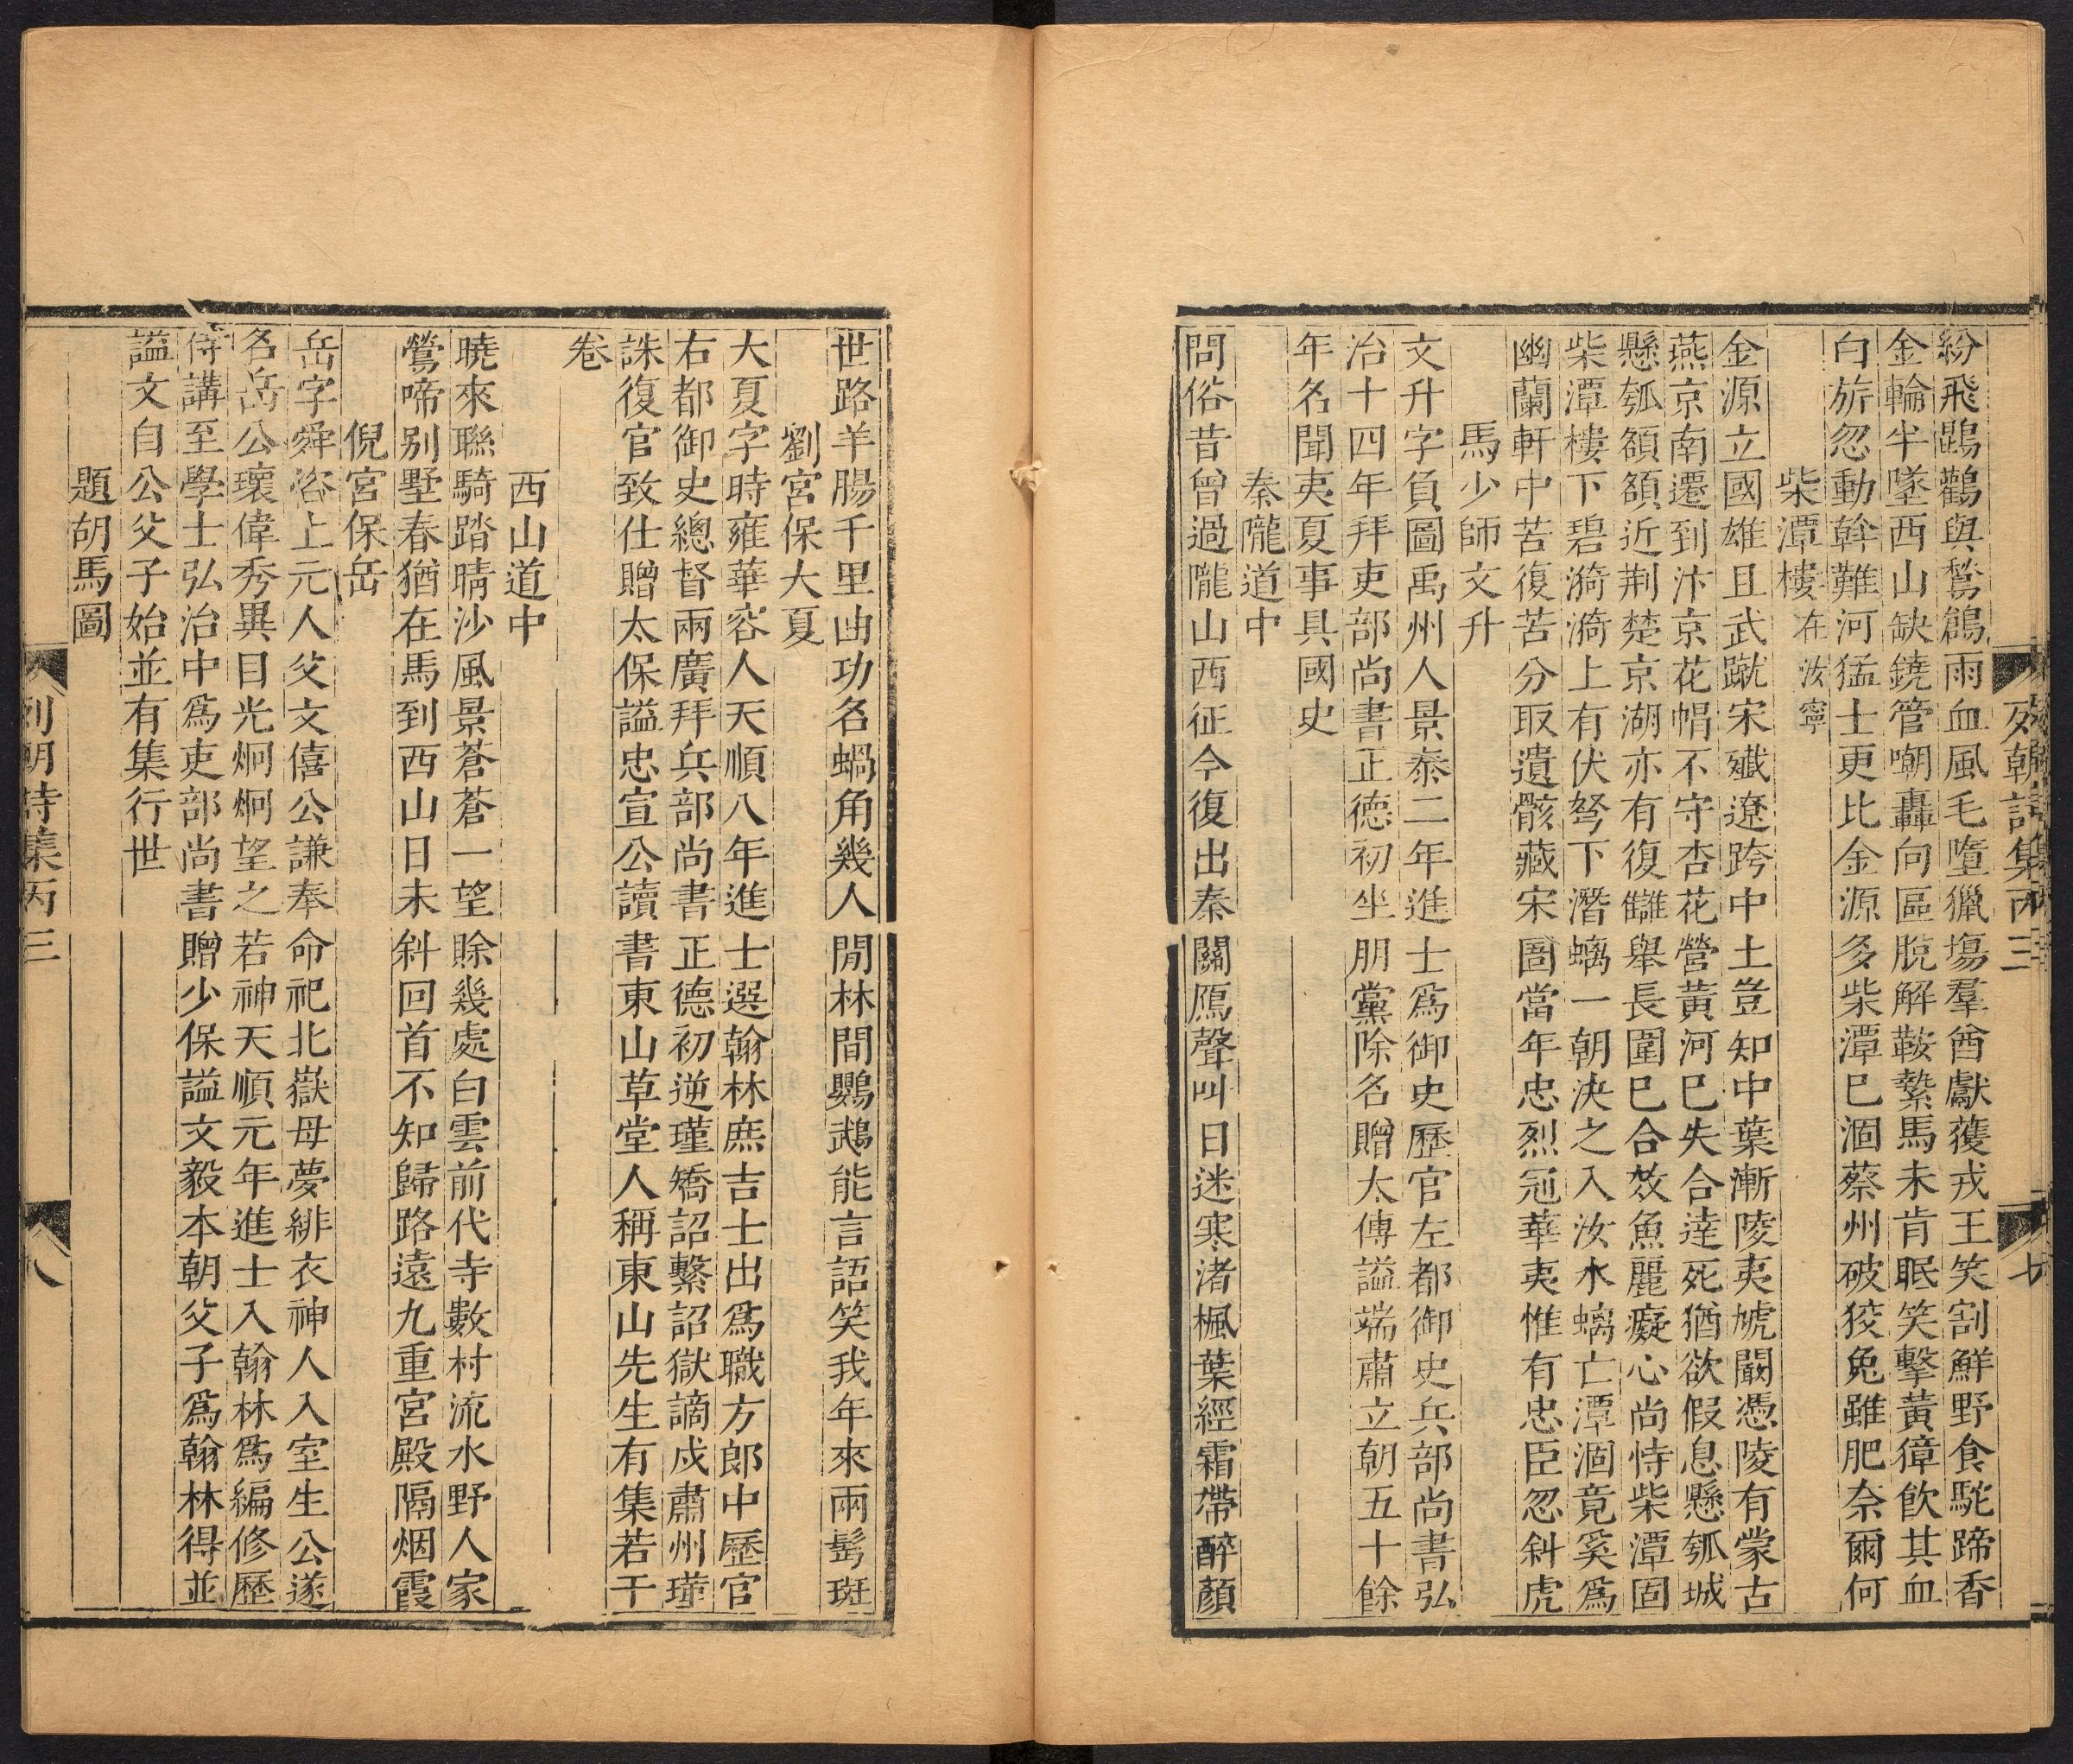 紛飛鶗鸛與鶖鶬雨血風毛墮獵場羣酋獻獲戎王笑割鮮野食駝蹄香
金輪半墜西山缺鐃管嘲轟向區脫解鞍縶馬未肯眠笑擊黃獐飲其血
白旂忽動斡難河猛士更比金源多柴潭巳涸蔡州破狡兔雖肥奈爾何
柴潭樓在汝寧
金源立國雄且武蹴宋殲遼跨中土豈知中葉漸陵夷虓闞憑陵有蒙古
燕京南遷到汴京花帽不守杏花營黃河巳失合達死猶欲假息懸瓠城
懸瓠頟頟近荆楚京湖亦有復讎舉長圍巳合效魚麗癡心尚恃柴潭固
柴潭樓下碧漪漪上有伏弩下潛螭一朝決之入汝水螭亡潭涸竟奚爲
幽蘭軒中苦復苦分取遺骸藏宋圄當年忠烈冠華夷惟有忠臣忽斜虎
馬少師文升
文升字負圖禹州人景泰二年進士爲御史歷官左都御史兵部尚書弘
治十四年拜吏部尚書正德初坐朋黨除名贈太傅謚端肅立朝五十餘
年名聞夷夏事具國史
秦隴道中
問俗昔曾過隴山西征今復出秦關鴈聲叫日迷寒渚楓葉經霜帶醉顏
列朝詩集丙三
七
世路羊腸千里曲功名蝸角幾人閒林間鸚鵡能言語笑我年來兩髩斑
劉宮保大夏
大夏字時雍華容人天順八年進士選翰林庶吉士出爲職方郎中歷官
右都御史總督兩廣拜兵部尚書正德初逆瑾矯詔繫詔獄謫戍肅州瑾
誅復官致仕贈太保謚忠宣公讀書東山草堂人稱東山先生有集若干
卷
西山道中
曉來聯騎踏晴沙風景蒼蒼一望賒幾處白雲前代寺數村流水野人家
鶯啼别墅春猶在馬到西山日未斜回首不知歸路遠九重宮殿隔烟霞
倪宮保岳
岳字舜咨上元人父文僖公謙奉命祀北嶽母夢緋衣神人入室生公遂
名岳公瓌偉秀異目光炯炯望之若神天順元年進士入翰林爲編修歷
侍講至學士弘治中爲吏部尚書贈少保謚文毅本朝父子爲翰林得並
謚文自公父子始並有集行世
題胡馬圖
列朝詩集丙三
八